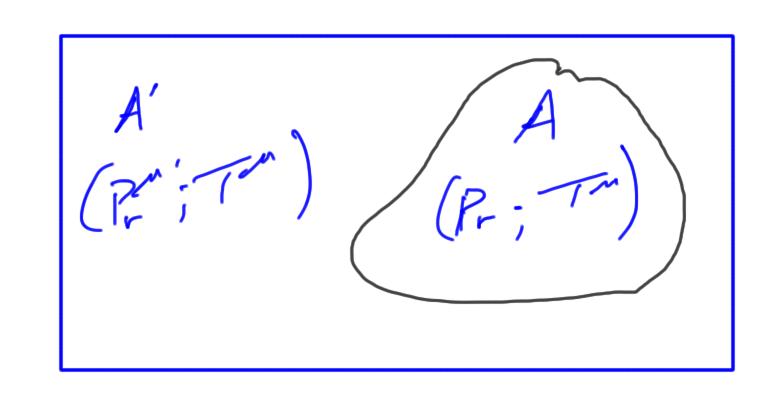 A′
A
(Pᵣᵐ′; Tᵐ)
(Pᵣ; Tᵐ)